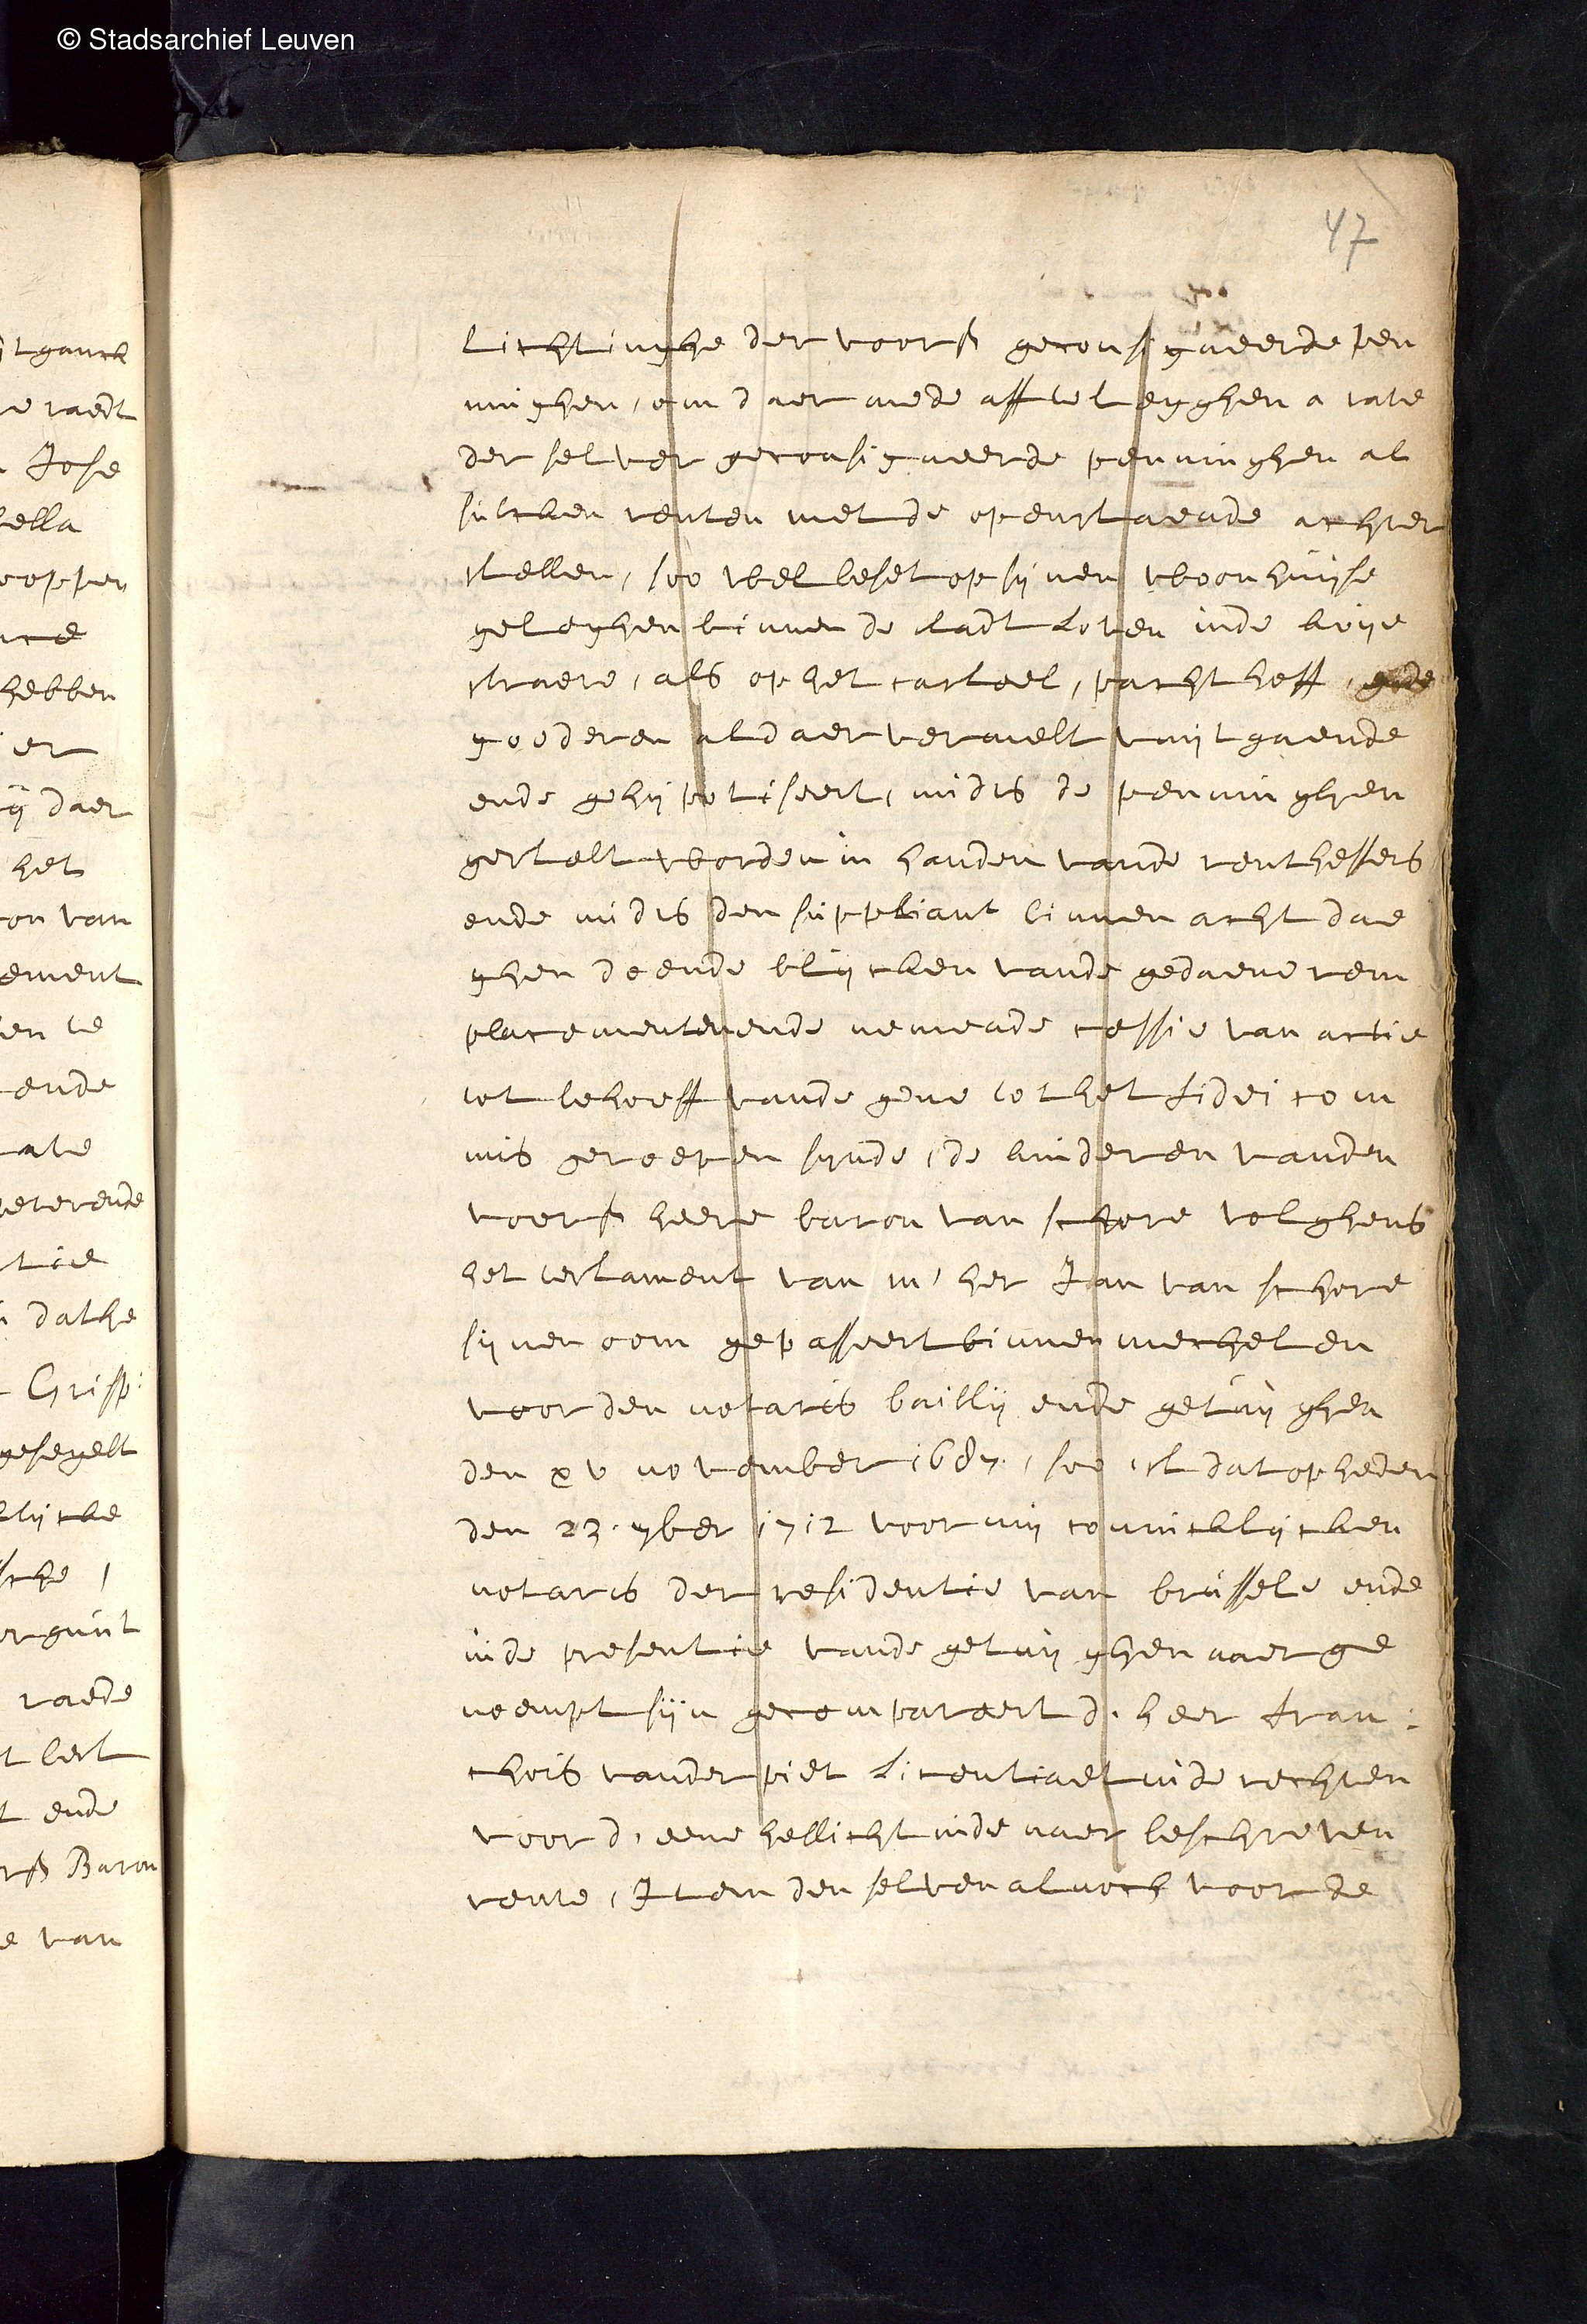 © Stadsarchief Leuven
47
lichtinghe der voors geconsigneerde pen
ninghen, om daer mede aff te legghen a rate
der selver geconsigneerde penninghen al
sulcken renten met de openstaende achter
stellen, soo wel beset op sijnen woonhuijse
geleghen binnen de stadt Loven inde
straete, als op het casteel, pachthoff,
goederen aldaer vermelt vuijtgaende
ende gehijpotiseert, midts de penninghen
gestelt worden in handen vande renthessers
ende midts den suppliant binnen acht dae
ghen doende blijcken vande gedaene rem
placementen ende nemende cessie van actie
tot behoeff vande gene tot het fidei com
mis geroepen synde, de kinderen vanden
voors heere baron van schore volghens
het testament van mher Jan van schore
sijnen oom gepasseert binnen mechelen
voor den notaris baillij ende getuijghen
den xv november 1687, soo ist dat op heden
den 23. 7ber 1712 voor mij coninckl ijcken
notaris der residentie van brussele ende
inde presentie vande getuijghen naerge
noempt sijn gecompareert d'heer fran:
chois vander piet licentiaet inde rechten
voor d'eene hellicht inde naer beschreven
rente, Item den selven alnoch voor de
jtganck
raedt
Jose
ella
hebben
er
daer
het
on van
ement
en te
ende
ate
tie
dat he
Crisp:
gesegelt
lijcke
sche,
ergunt
raede
t best
t ende
rs Baron
e van